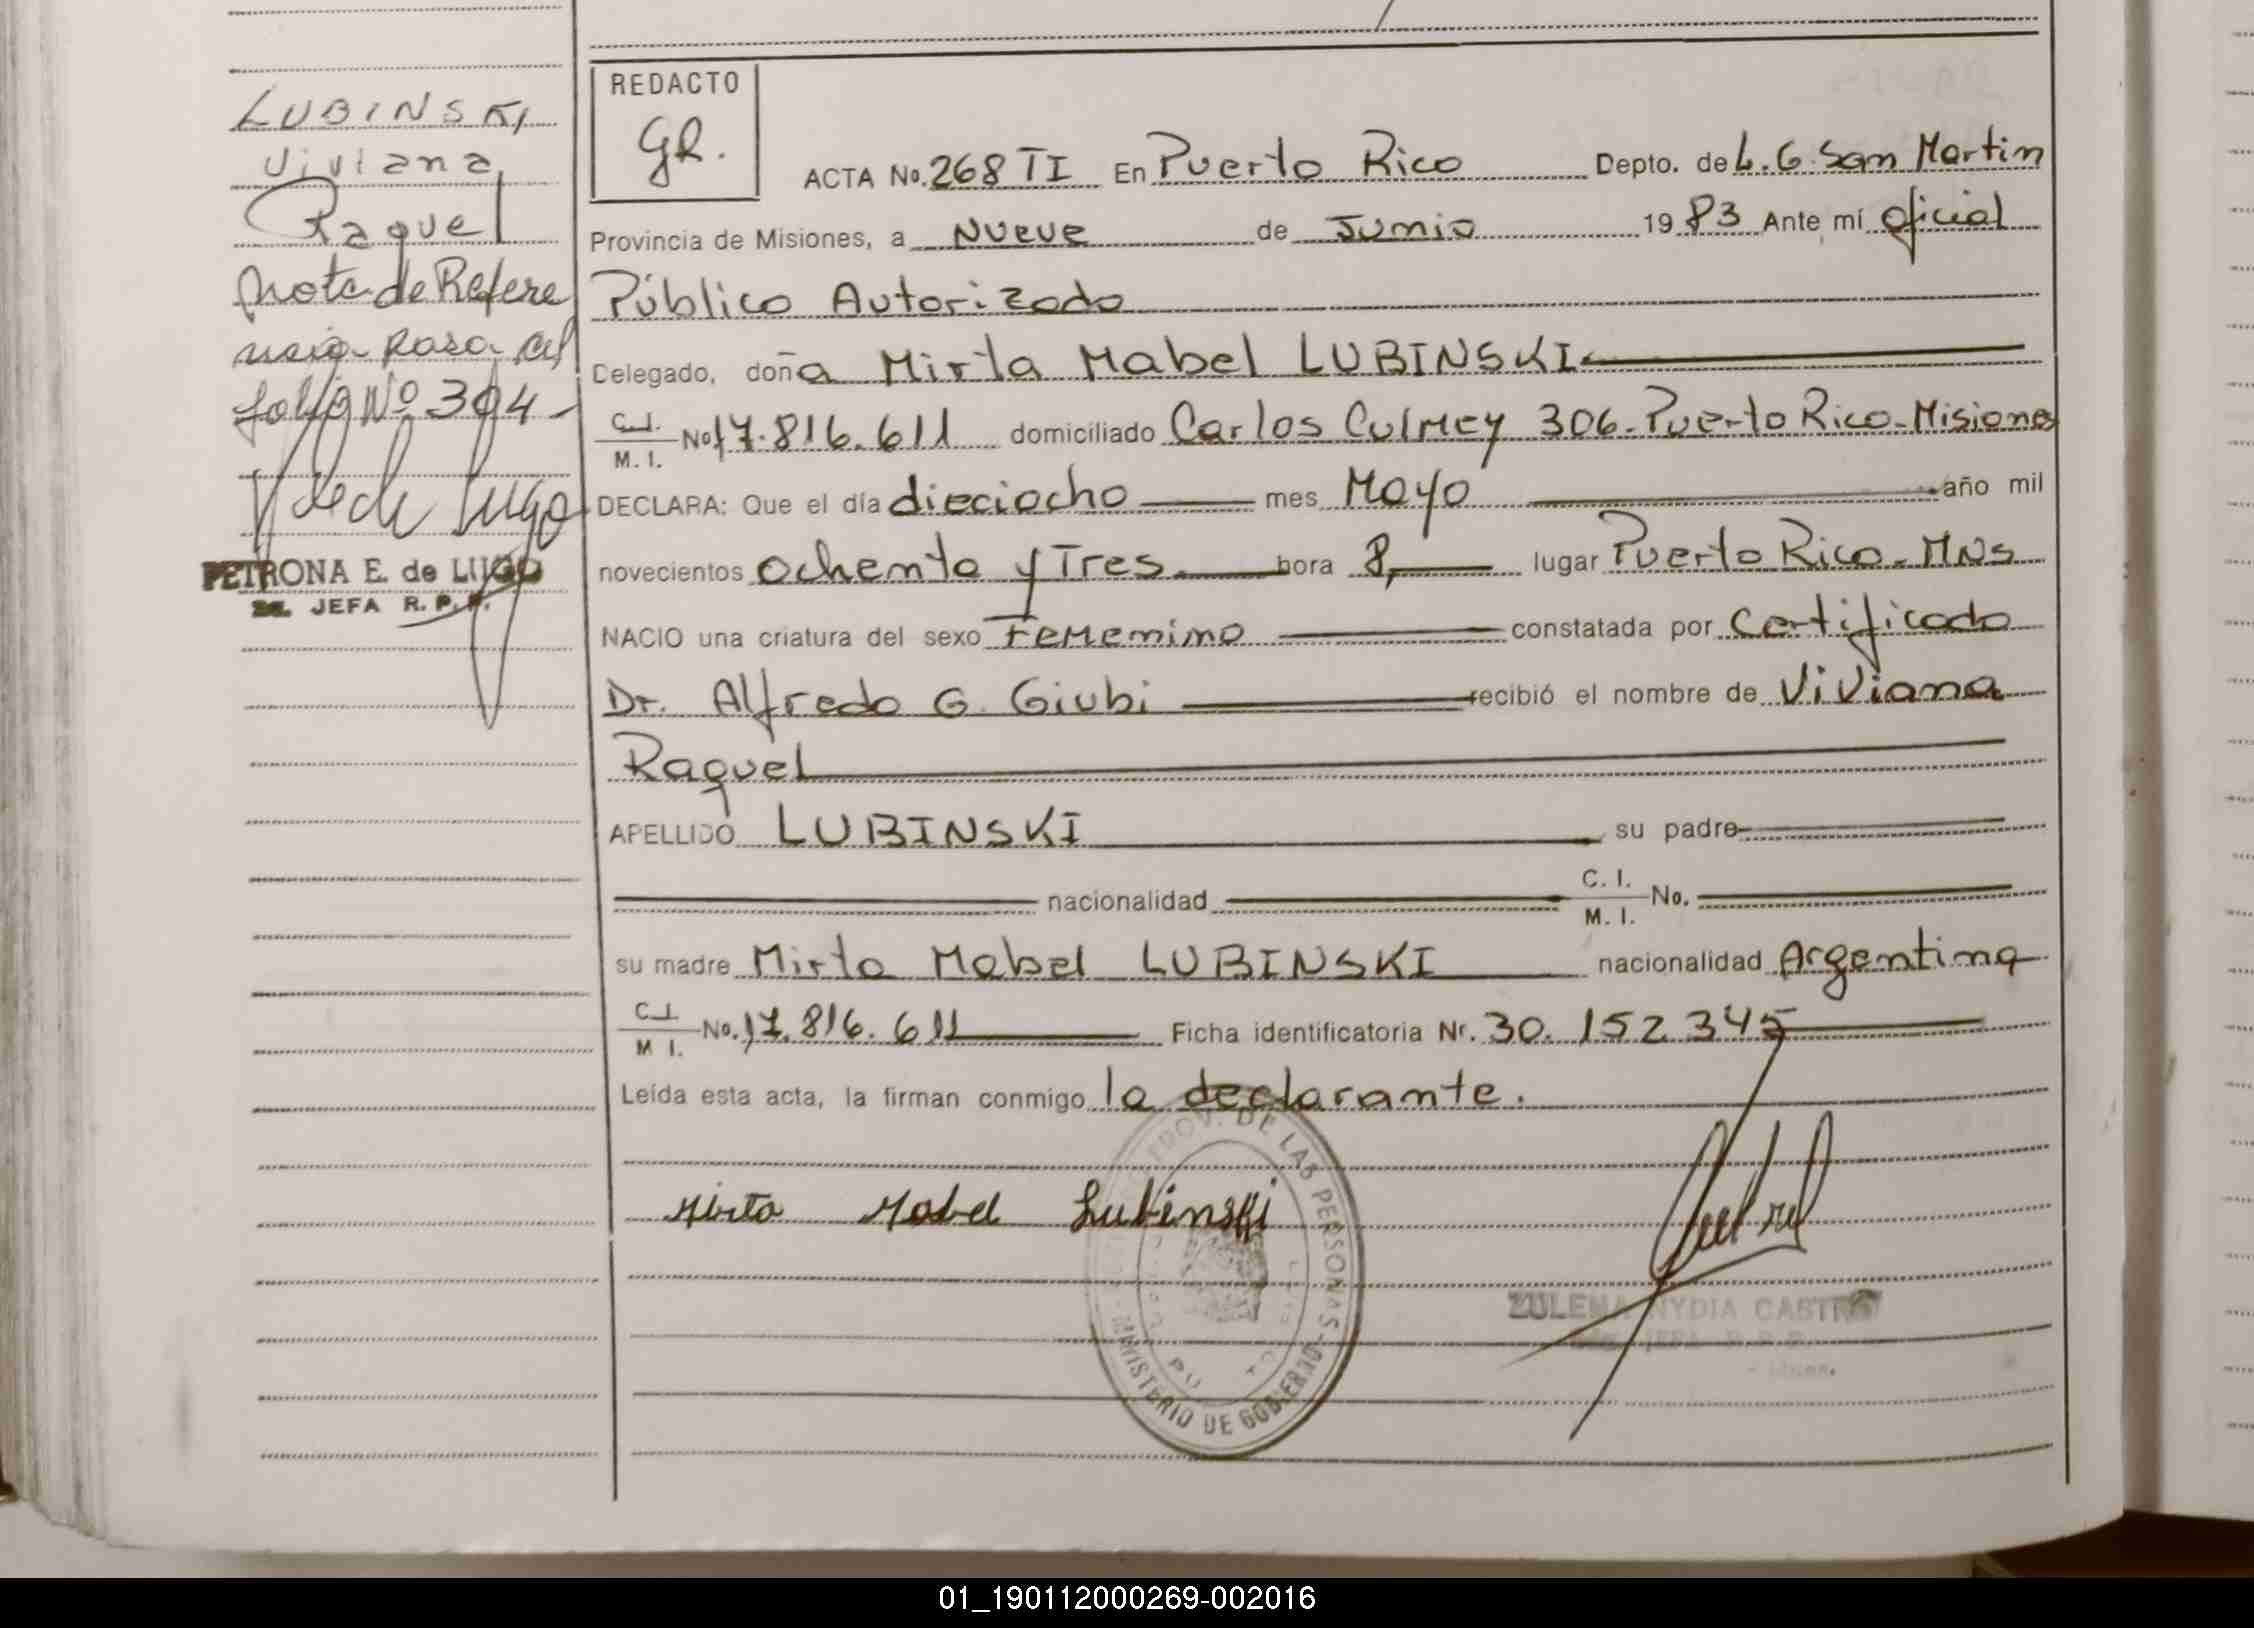 LUBINSKI
Viviana
Raquel
Nota de Refere
ncia Pasa al
folio Nº 304
PETRONA E. de LUGO
JEFA R. P. P.
REDACTO
GR.
ACTA No. 268 TI En Puerto Rico Depto. de L. G. San Martin
Provincia de Misiones, a Nueve de Junio 1983 Ante mí oficial
Público Autorizado
Delegado, doña Mirta Mabel LUBINSKI
C.I. M. I. No 17.816.611 domiciliado Carlos Culmey 306-Puerto Rico-Misiones
DECLARA: Que el día dieciocho mes Mayo año mil
novecientos ochenta y Tres hora 8, lugar Puerto Rico-MNS
NACIO una criatura del sexo Femenino constatada por Certificado
Dr. Alfredo G. Giubi recibió el nombre de Viviana
Raquel
APELLIDO LUBINSKI su padre
nacionalidad C. I. M. I. No.
su madre Mirta Mabel LUBINSKI nacionalidad Argentina
C.I. M I. No. 17.816.611 Ficha identificatoria Nr. 30.152.345
Leída esta acta, la firman conmigo la declarante.
Mirta Mabel Lubinski
PROV. DE LAS PERSONAS - MINISTERIO DE GOBIERNO
ZULEMA NYDIA CASTRO
JEFA
01_190112000269-002016